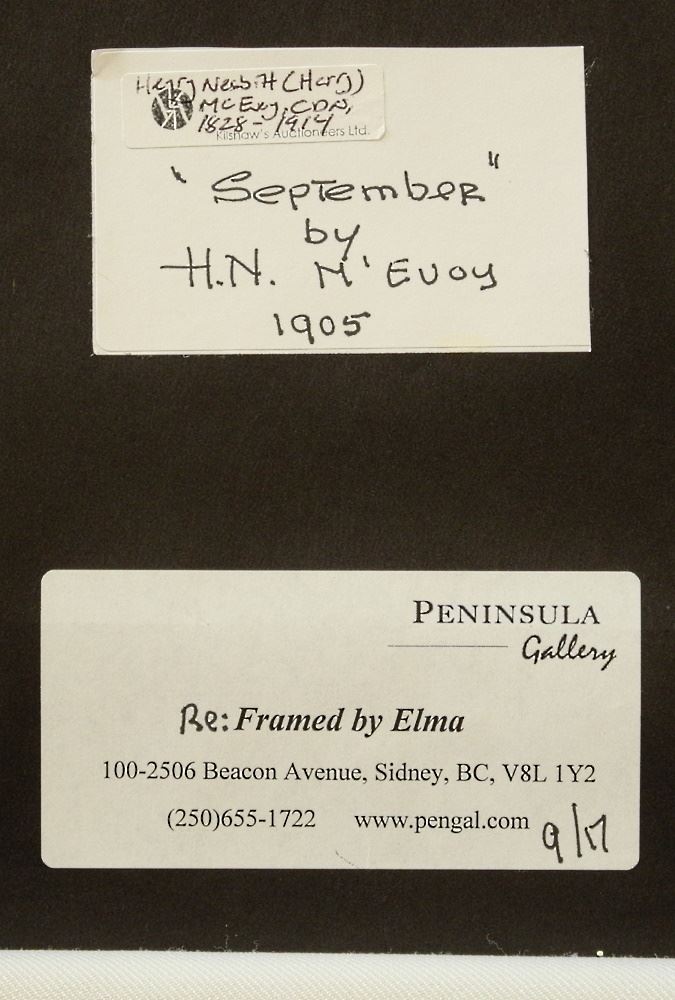 Henry Nesbitt (Harry)
McEvoy, CDN,
1828 - 1914
Kilshaw's Auctioneers Ltd.
"September"
by
H.N. M'Evoy
1905
PENINSULA
Gallery
Re: Framed by Elma
100-2506 Beacon Avenue, Sidney, BC, V8L 1Y2
(250)655-1722 www.pengal.com
9/17